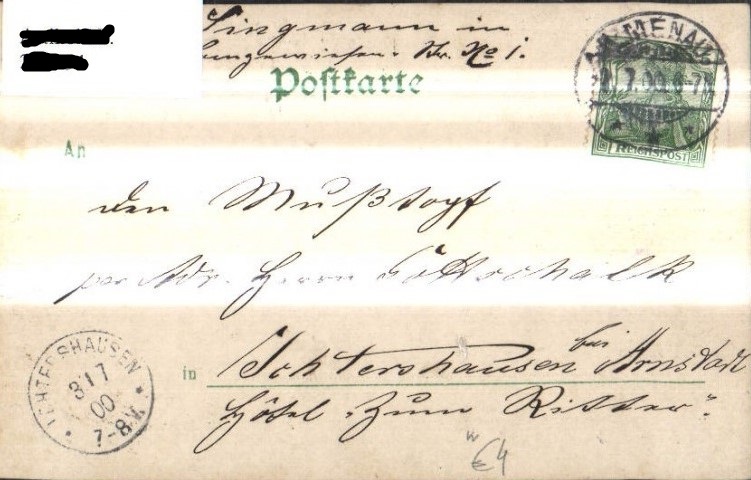 Singmann in
Str. No 1.
Postkarte
ILMENAU
7.00.6-7
REICHSPOST
An
den Mußtopf
per Adr. Herrn Göttschalk
in Ichtershausen bei Arnstadt
Hôtel "Zum Ritter".
ICHTERSHAUSEN
31 7
00
7-8V.
€4